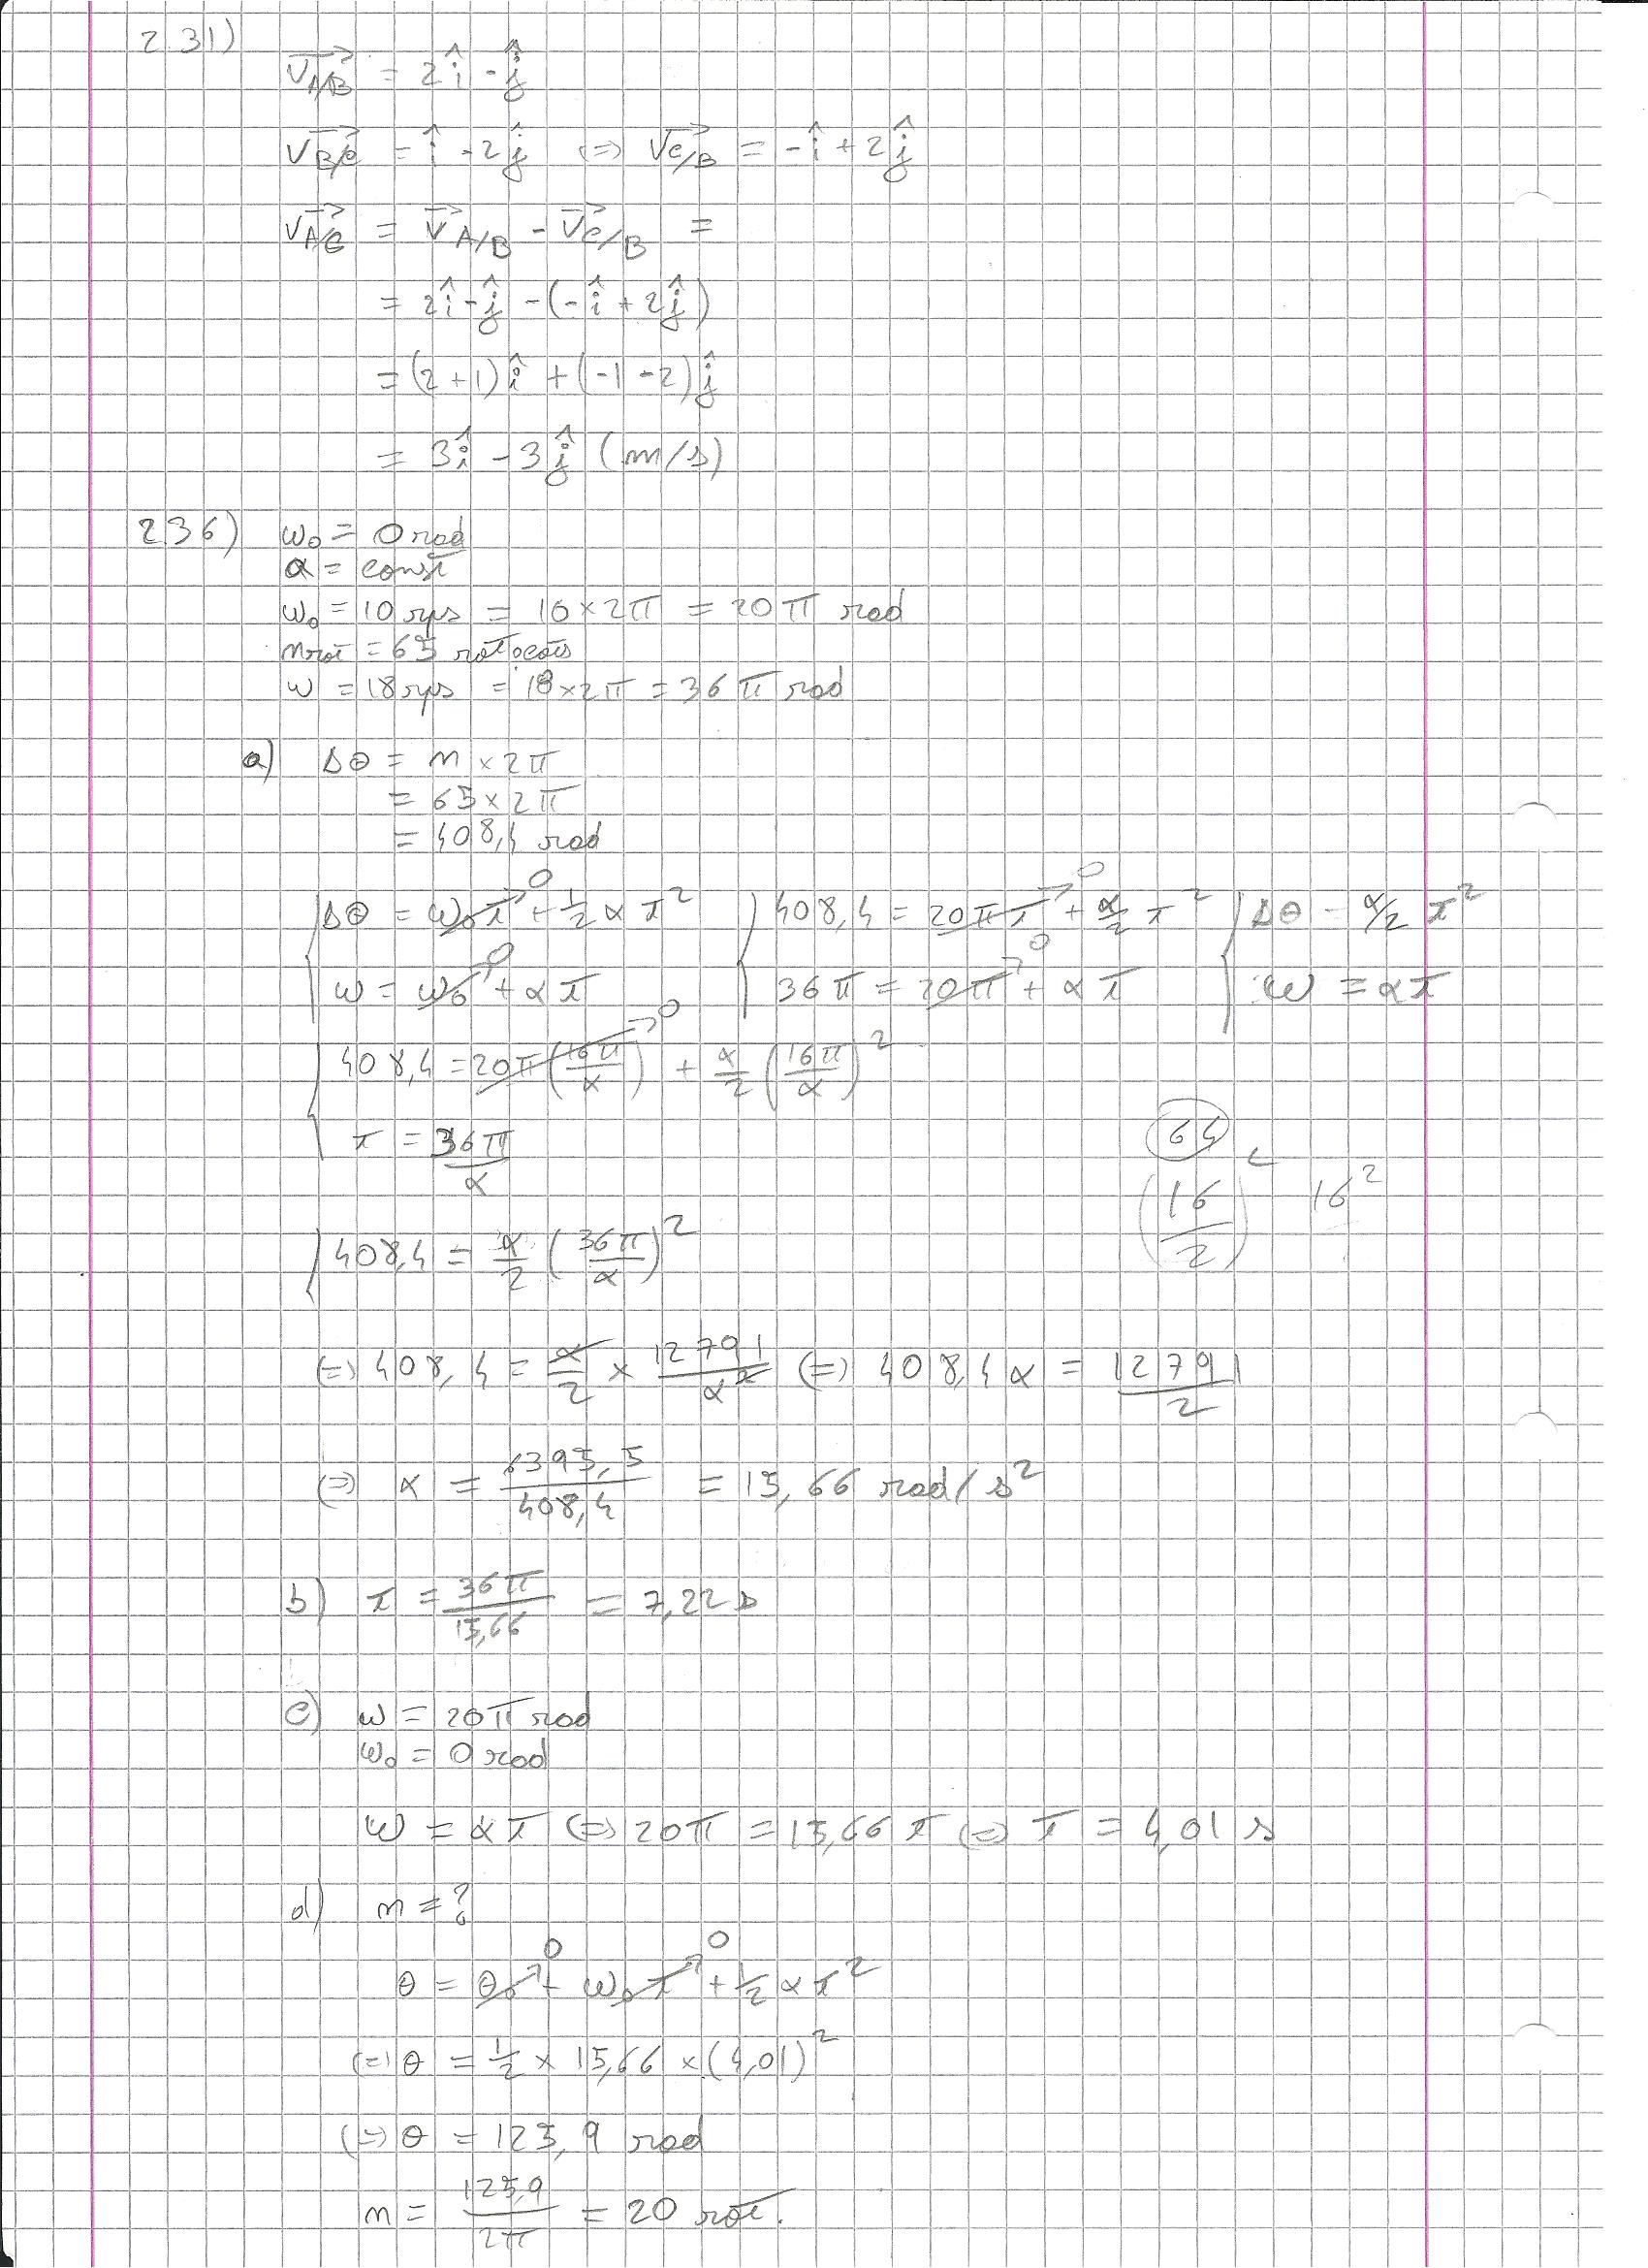 2.31)
v⃗A/B = 2î - ĵ
v⃗B/C = î - 2ĵ (=) v⃗C/B = -î + 2ĵ
v⃗A/C = v⃗A/B - v⃗C/B =
= 2î - ĵ - (-î + 2ĵ)
= (2+1)î + (-1-2)ĵ
= 3î - 3ĵ (m/s)
2.36) ω₀ = 0 rad
α = const
ω₀ = 10 rps = 10×2π = 20π rad
nrot = 65 rotações
ω = 18 rps = 18×2π = 36π rad
a) Δθ = n×2π
= 65×2π
= 408,4 rad
Δθ = ω₀t→0 + 1/2 αt² } 408,4 = 20πt→0 + α/2 t² } Δθ = α/2 t²
ω = ω₀→0 + αt } 36π = 20π→0 + αt } ω = αt
408,4 = 20π(16π/α)→0 + α/2 (16π/α)²
t = 36π/α
64
(16/2)² 16²
408,4 = α/2 (36π/α)²
(=) 408,4 = α/2 × 12791/α² (=) 408,4α = 12791/2
(=) α = 6395,5/408,4 = 15,66 rad/s²
b) t = 36π/15,66 = 7,22 s
c) ω = 20π rad
ω₀ = 0 rad
ω = αt (=) 20π = 15,66 t (=) t = 4,01 s
d) n = ?
θ = θ₀→0 + ω₀t→0 + 1/2 αt²
(=) θ = 1/2 × 15,66 × (4,01)²
(=) θ = 125,9 rad
n = 125,9/2π = 20 rot.